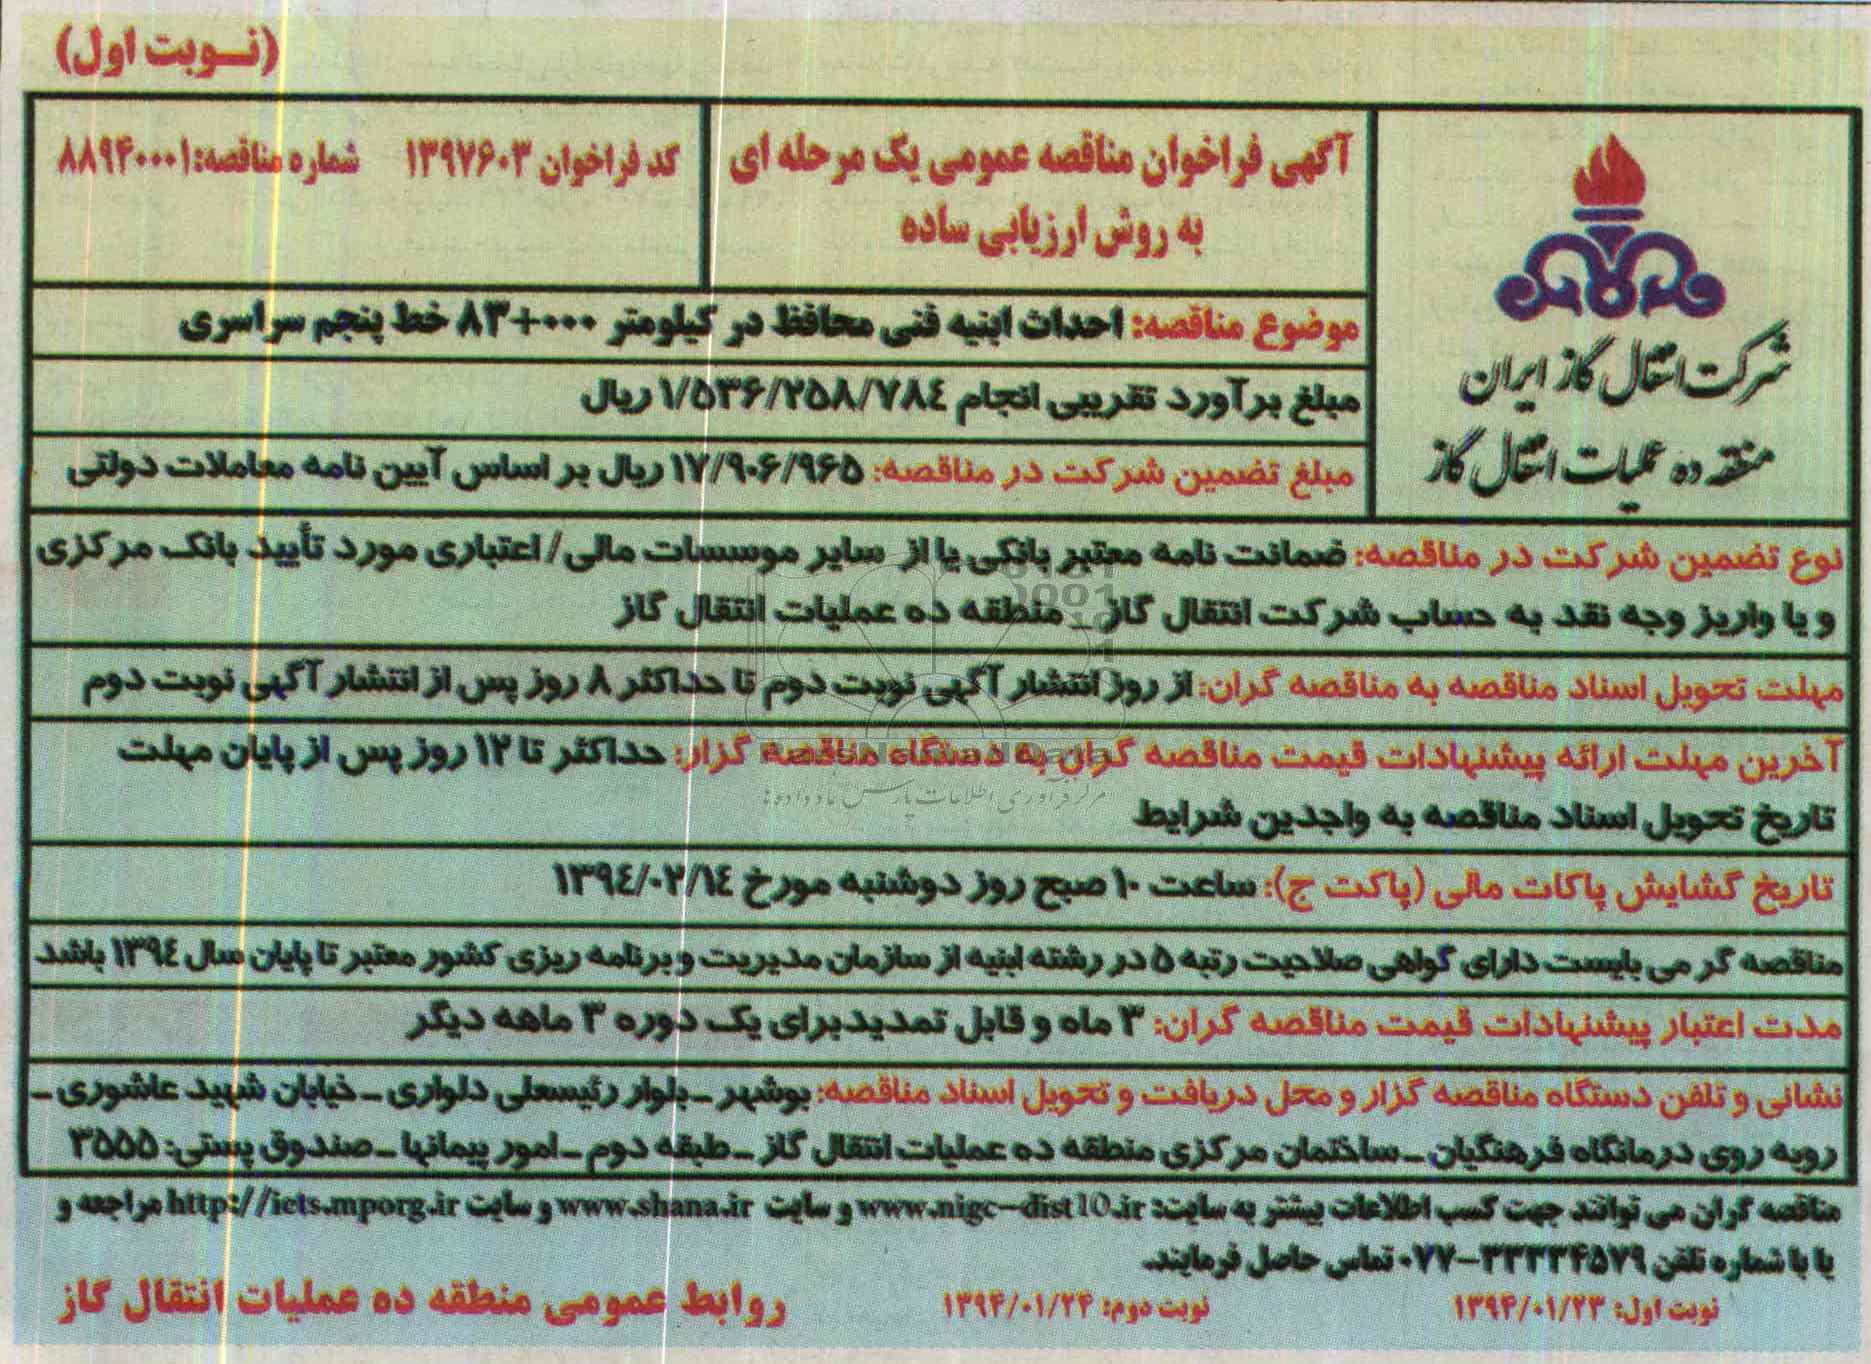 (نوبت اول)
شرکت انتقال گاز ایران
منطقه ده عملیات انتقال گاز
آگهی فراخوان مناقصه عمومی یک مرحله ای
به روش ارزیابی ساده
کد فراخوان ۱۳۹۷۶۰۳ شماره مناقصه: ۸۸۹۴۰۰۰۱
موضوع مناقصه: احداث ابنیه فنی محافظ در کیلومتر ۰۰۰+۸۳ خط پنجم سراسری
مبلغ برآورد تقریبی انجام ۱/۵۳۶/۲۵۸/۷۸۴ ریال
مبلغ تضمین شرکت در مناقصه: ۱۷/۹۰۶/۹۶۵ ریال بر اساس آیین نامه معاملات دولتی
نوع تضمین شرکت در مناقصه: ضمانت نامه معتبر بانکی یا از سایر موسسات مالی/اعتباری مورد تأیید بانک مرکزی
و یا واریز وجه نقد به حساب شرکت انتقال گاز _ منطقه ده عملیات انتقال گاز
مهلت تحویل اسناد مناقصه به مناقصه گران: از روز انتشار آگهی نوبت دوم تا حداکثر ۸ روز پس از انتشار آگهی نوبت دوم
آخرین مهلت ارائه پیشنهادات قیمت مناقصه گران به دستگاه مناقصه گزار: حداکثر تا ۱۲ روز پس از پایان مهلت
تاریخ تحویل اسناد مناقصه به واجدین شرایط
تاریخ گشایش پاکات مالی (پاکت ج): ساعت ۱۰ صبح روز دوشنبه مورخ ۱۳۹۴/۰۲/۱۴
مناقصه گر می بایست دارای گواهی صلاحیت رتبه ۵ در رشته ابنیه از سازمان مدیریت و برنامه ریزی کشور معتبر تا پایان سال ۱۳۹۴ باشد
مدت اعتبار پیشنهادات قیمت مناقصه گران: ۳ ماه و قابل تمدید برای یک دوره ۳ ماهه دیگر
نشانی و تلفن دستگاه مناقصه گزار و محل دریافت و تحویل اسناد مناقصه: بوشهر _ بلوار رئیسعلی دلواری _ خیابان شهید عاشوری _
روبه روی درمانگاه فرهنگیان _ ساختمان مرکزی منطقه ده عملیات انتقال گاز _ طبقه دوم _ امور پیمانها _ صندوق پستی: ۳۵۵۵
مناقصه گران می توانند جهت کسب اطلاعات بیشتر به سایت: www.nigc-dist10.ir و سایت www.shana.ir و سایت http://iets.mporg.ir مراجعه و
یا با شماره تلفن ۳۳۳۳۴۵۷۹-۰۷۷ تماس حاصل فرمایند.
نوبت اول: ۱۳۹۴/۰۱/۲۳ نوبت دوم: ۱۳۹۴/۰۱/۲۴ روابط عمومی منطقه ده عملیات انتقال گاز
مرکز فرآوری اطلاعات پارس نماد داده ها